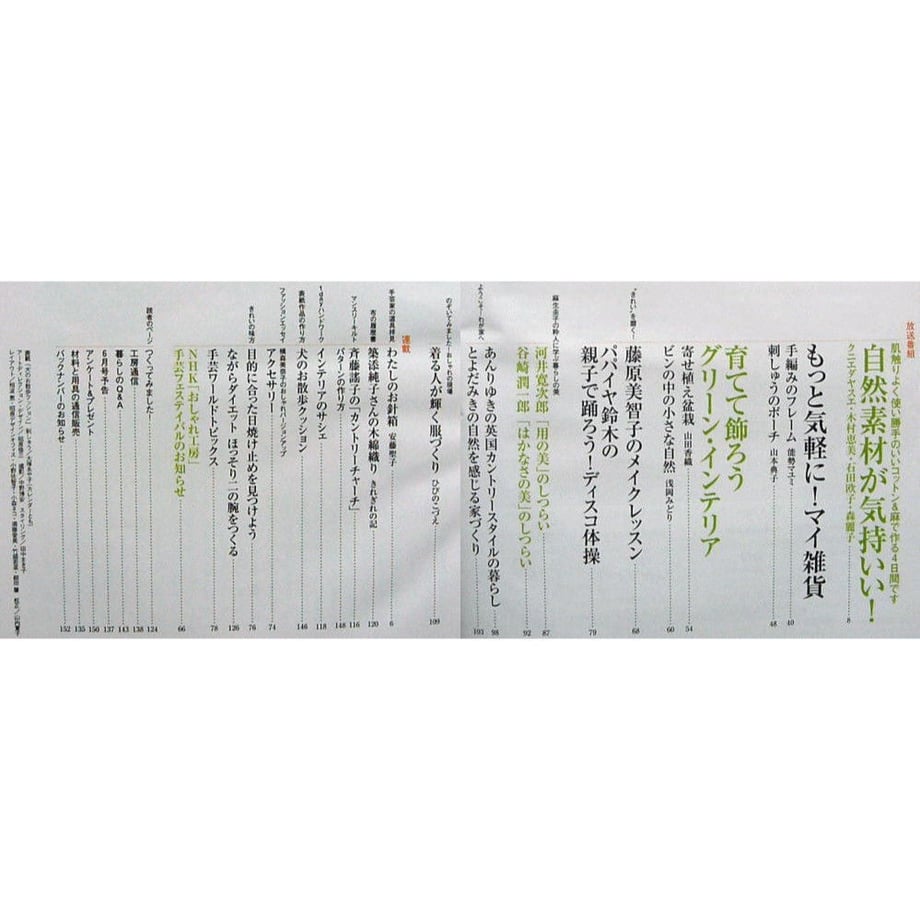 放送番組
肌触りよく使い勝手のいいコットン&麻で作る4日間です
自然素材が気持いい!
クニエダヤスエ・木村恵美・石田欧子・森麗子 8
もっと気軽に!マイ雑貨
手編みのフレーム 能勢マユミ 40
刺しゅうのポーチ 山本典子 48
育てて飾ろう
グリーン・インテリア
寄せ植え盆栽 山田香織 54
ビンの中の小さな自然 浅岡みどり 60
“きれい”を磨く
藤原美智子のメイクレッスン 68
パパイヤ鈴木の
親子で踊ろう!ディスコ体操 79
麻生圭子の粋人に学ぶ暮らしの美
河井寛次郎「用の美」のしつらい 87
谷崎潤一郎「はかなさの美」のしつらい 92
ようこそ!わが家へ
あんりゆきの英国カントリースタイルの暮らし 98
とよだみきの自然を感じる家づくり 103
のぞいてみました!おしゃれの現場
着る人が輝く服づくり ひびのこづえ 109
連載
手芸家の道具拝見 わたしのお針箱 安藤聖子 6
布の履歴書 築添純子さんの木綿織り きれぎれの記 120
マンスリーキルト 斉藤謠子の「カントリーチャーチ」 116
パターンの作り方 148
1dayハンドワーク インテリアのサシェ 118
表紙作品の作り方 犬のお散歩クッション 146
ファッションエッセイ 横森美奈子のおしゃれバージョンアップ
アクセサリー 74
きれいの味方 目的に合った日焼け止めを見つけよう 76
ながらダイエット ほっそり二の腕をつくる 126
手芸ワールドトピックス 78
NHK「おしゃれ工房」
手芸フェスティバルのお知らせ 66
読者のページ つくってみました! 124
工房通信 138
暮らしのQ&A 143
6月号予告 137
アンケート&プレゼント 150
材料と用具の通信販売 135
バックナンバーのお知らせ 152